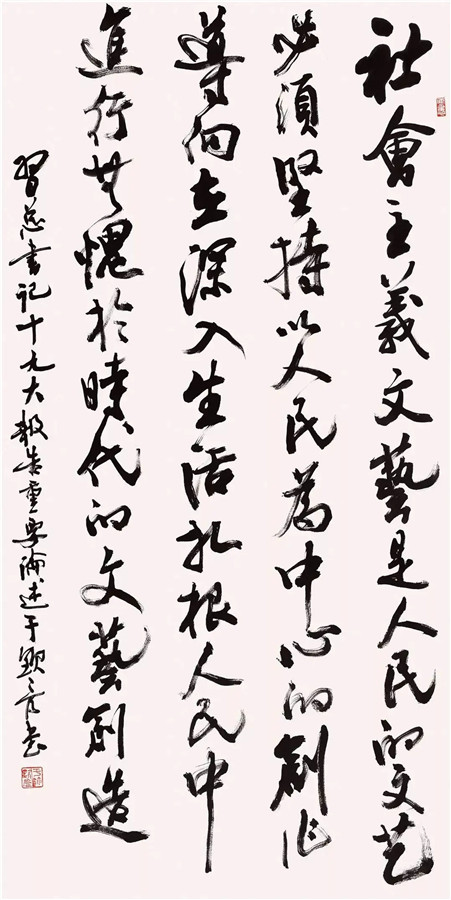 社會主義文藝是人民的文艺
必須堅持以人民為中心的創作
導向在深入生活扎根人民中
進行無愧於時代的文藝創造
習总書记十九大報告重要論述于